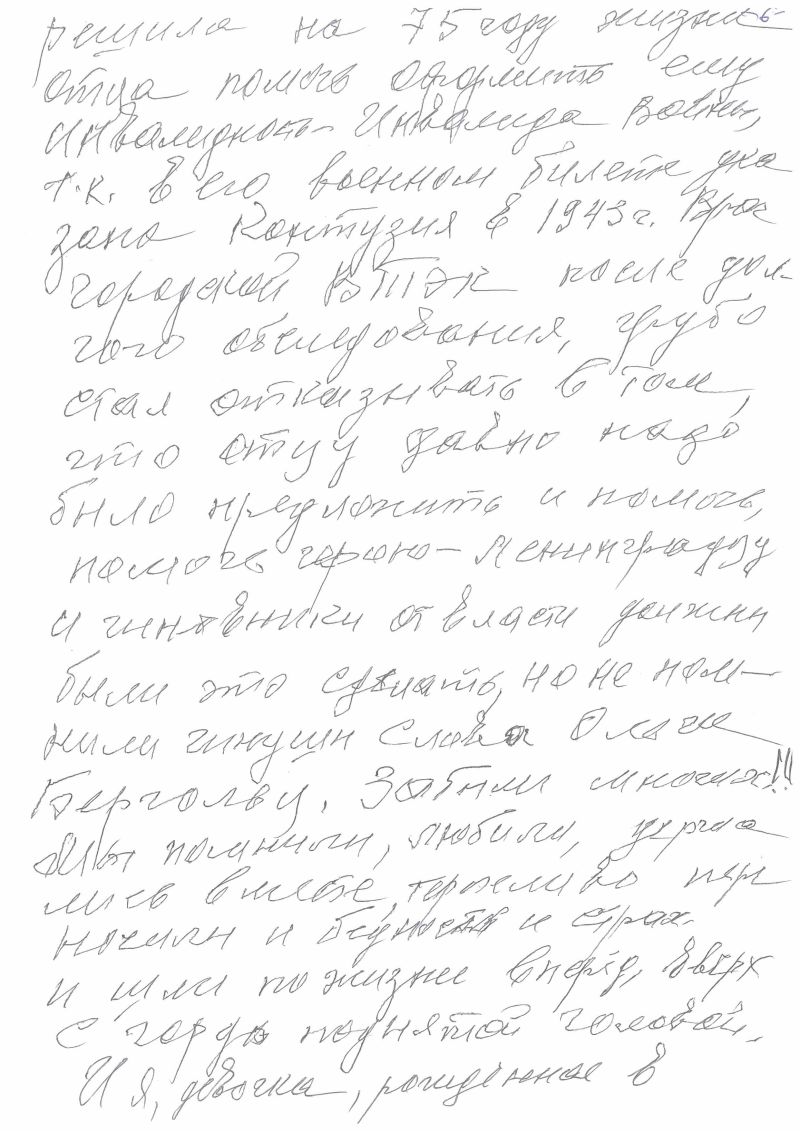 -6-
решила на 75 году жизни
отца помочь оформить ему
инвалидность Инвалида войны,
т.к. в его военном билете ука
зана контузия в 1943 г. Врач
городской ВТЭК после дол-
гого обследования, грубо
стал отказывать в том,
что отцу давно надо
было предложить и помочь,
помочь герою-ленинградцу
и чиновники от власти должны
были это сделать, но не пом-
нили чинуши слова Ольги
Берггольц. Забыли многих!!
Мы помнили, любили, держа
лись вместе, терпеливо пере
носили и бедность и страх
и шли по жизни вперёд, вверх
с гордо поднятой головой.
И я, девочка, рождённое в